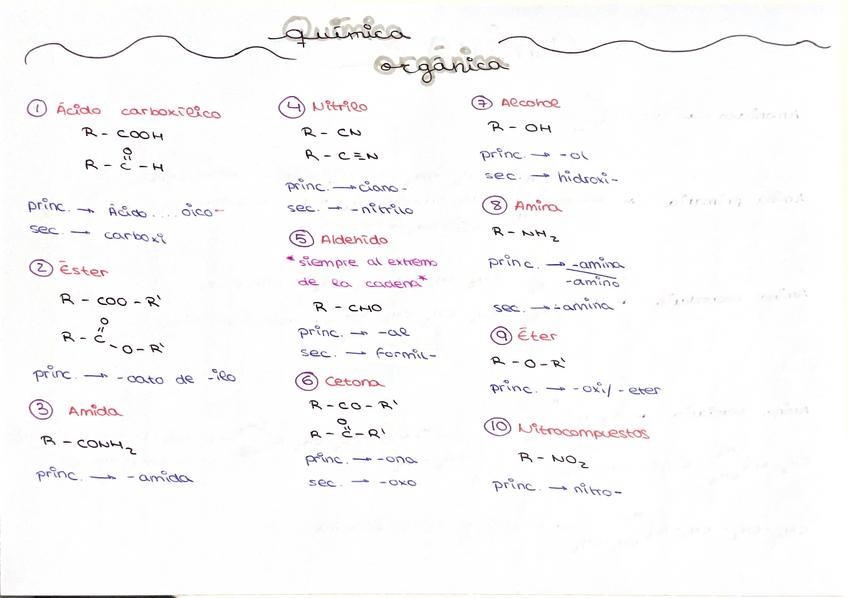 Química
orgánica
① Ácido carboxílico
R - COOH
O
R - C - H
princ. → Ácido .... oico-
sec. → carboxi
② Éster
R - COO - R'
O
R - C
- O - R'
princ. → -oato de -ilo
③ Amida
R - CONH2
princ. → -amida
④ Nitrilo
R - CN
R - C≡N
princ. → ciano-
sec. → -nitrilo
⑤ Aldehído
*siempre al extremo
de la cadena*
R - CHO
princ. → -al
sec. → formil-
⑥ Cetona
R - CO - R'
O
R - C - R'
princ. → -ona
sec. → -oxo
⑦ Alcohol
R - OH
princ. → -ol
sec. → hidroxi-
⑧ Amina
R - NH2
princ. → -amina
-amino
sec. → -amina
⑨ Éter
R - O - R'
princ. → -oxi/-eter
⑩ Nitrocompuestos
R - NO2
princ. → nitro-